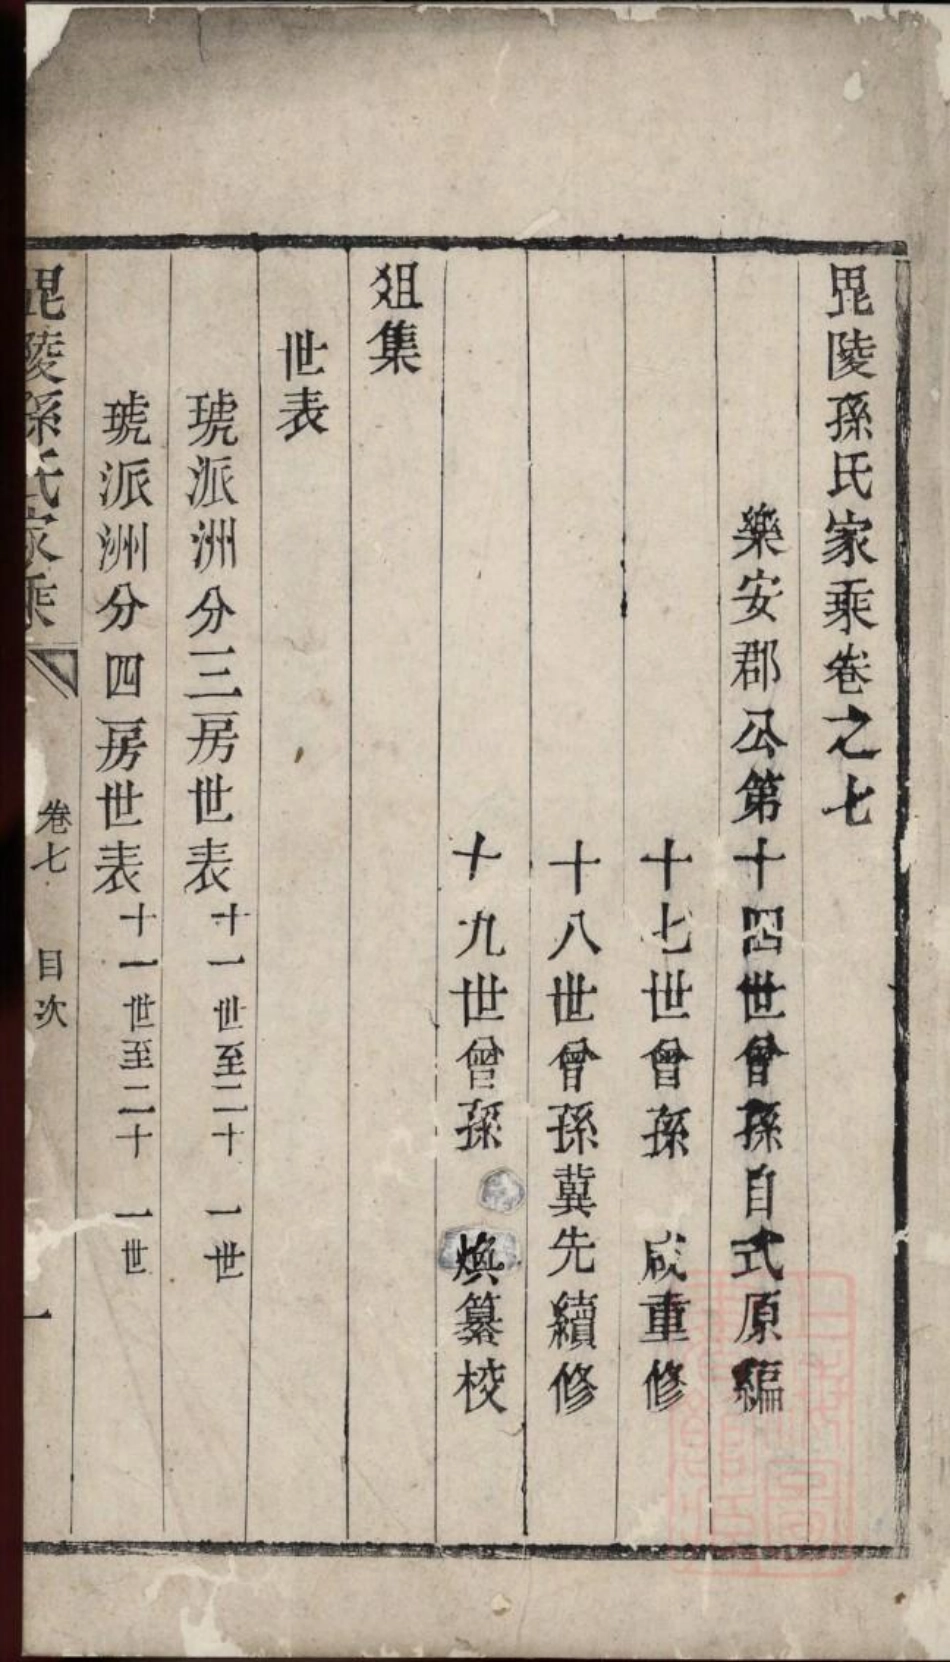 毘陵孫氏家乗卷之七
樂安郡公第十四世曾孫自式原編
十七世曾孫　咸重修
十八世曾孫蓂先續修
十九世曾孫　煥纂校
爼集
世表
琥派洲分三房世表十一世至二十一世
琥派洲分四房世表十一世至二十一世
毘陵孫氏家乗　卷七　目次　一